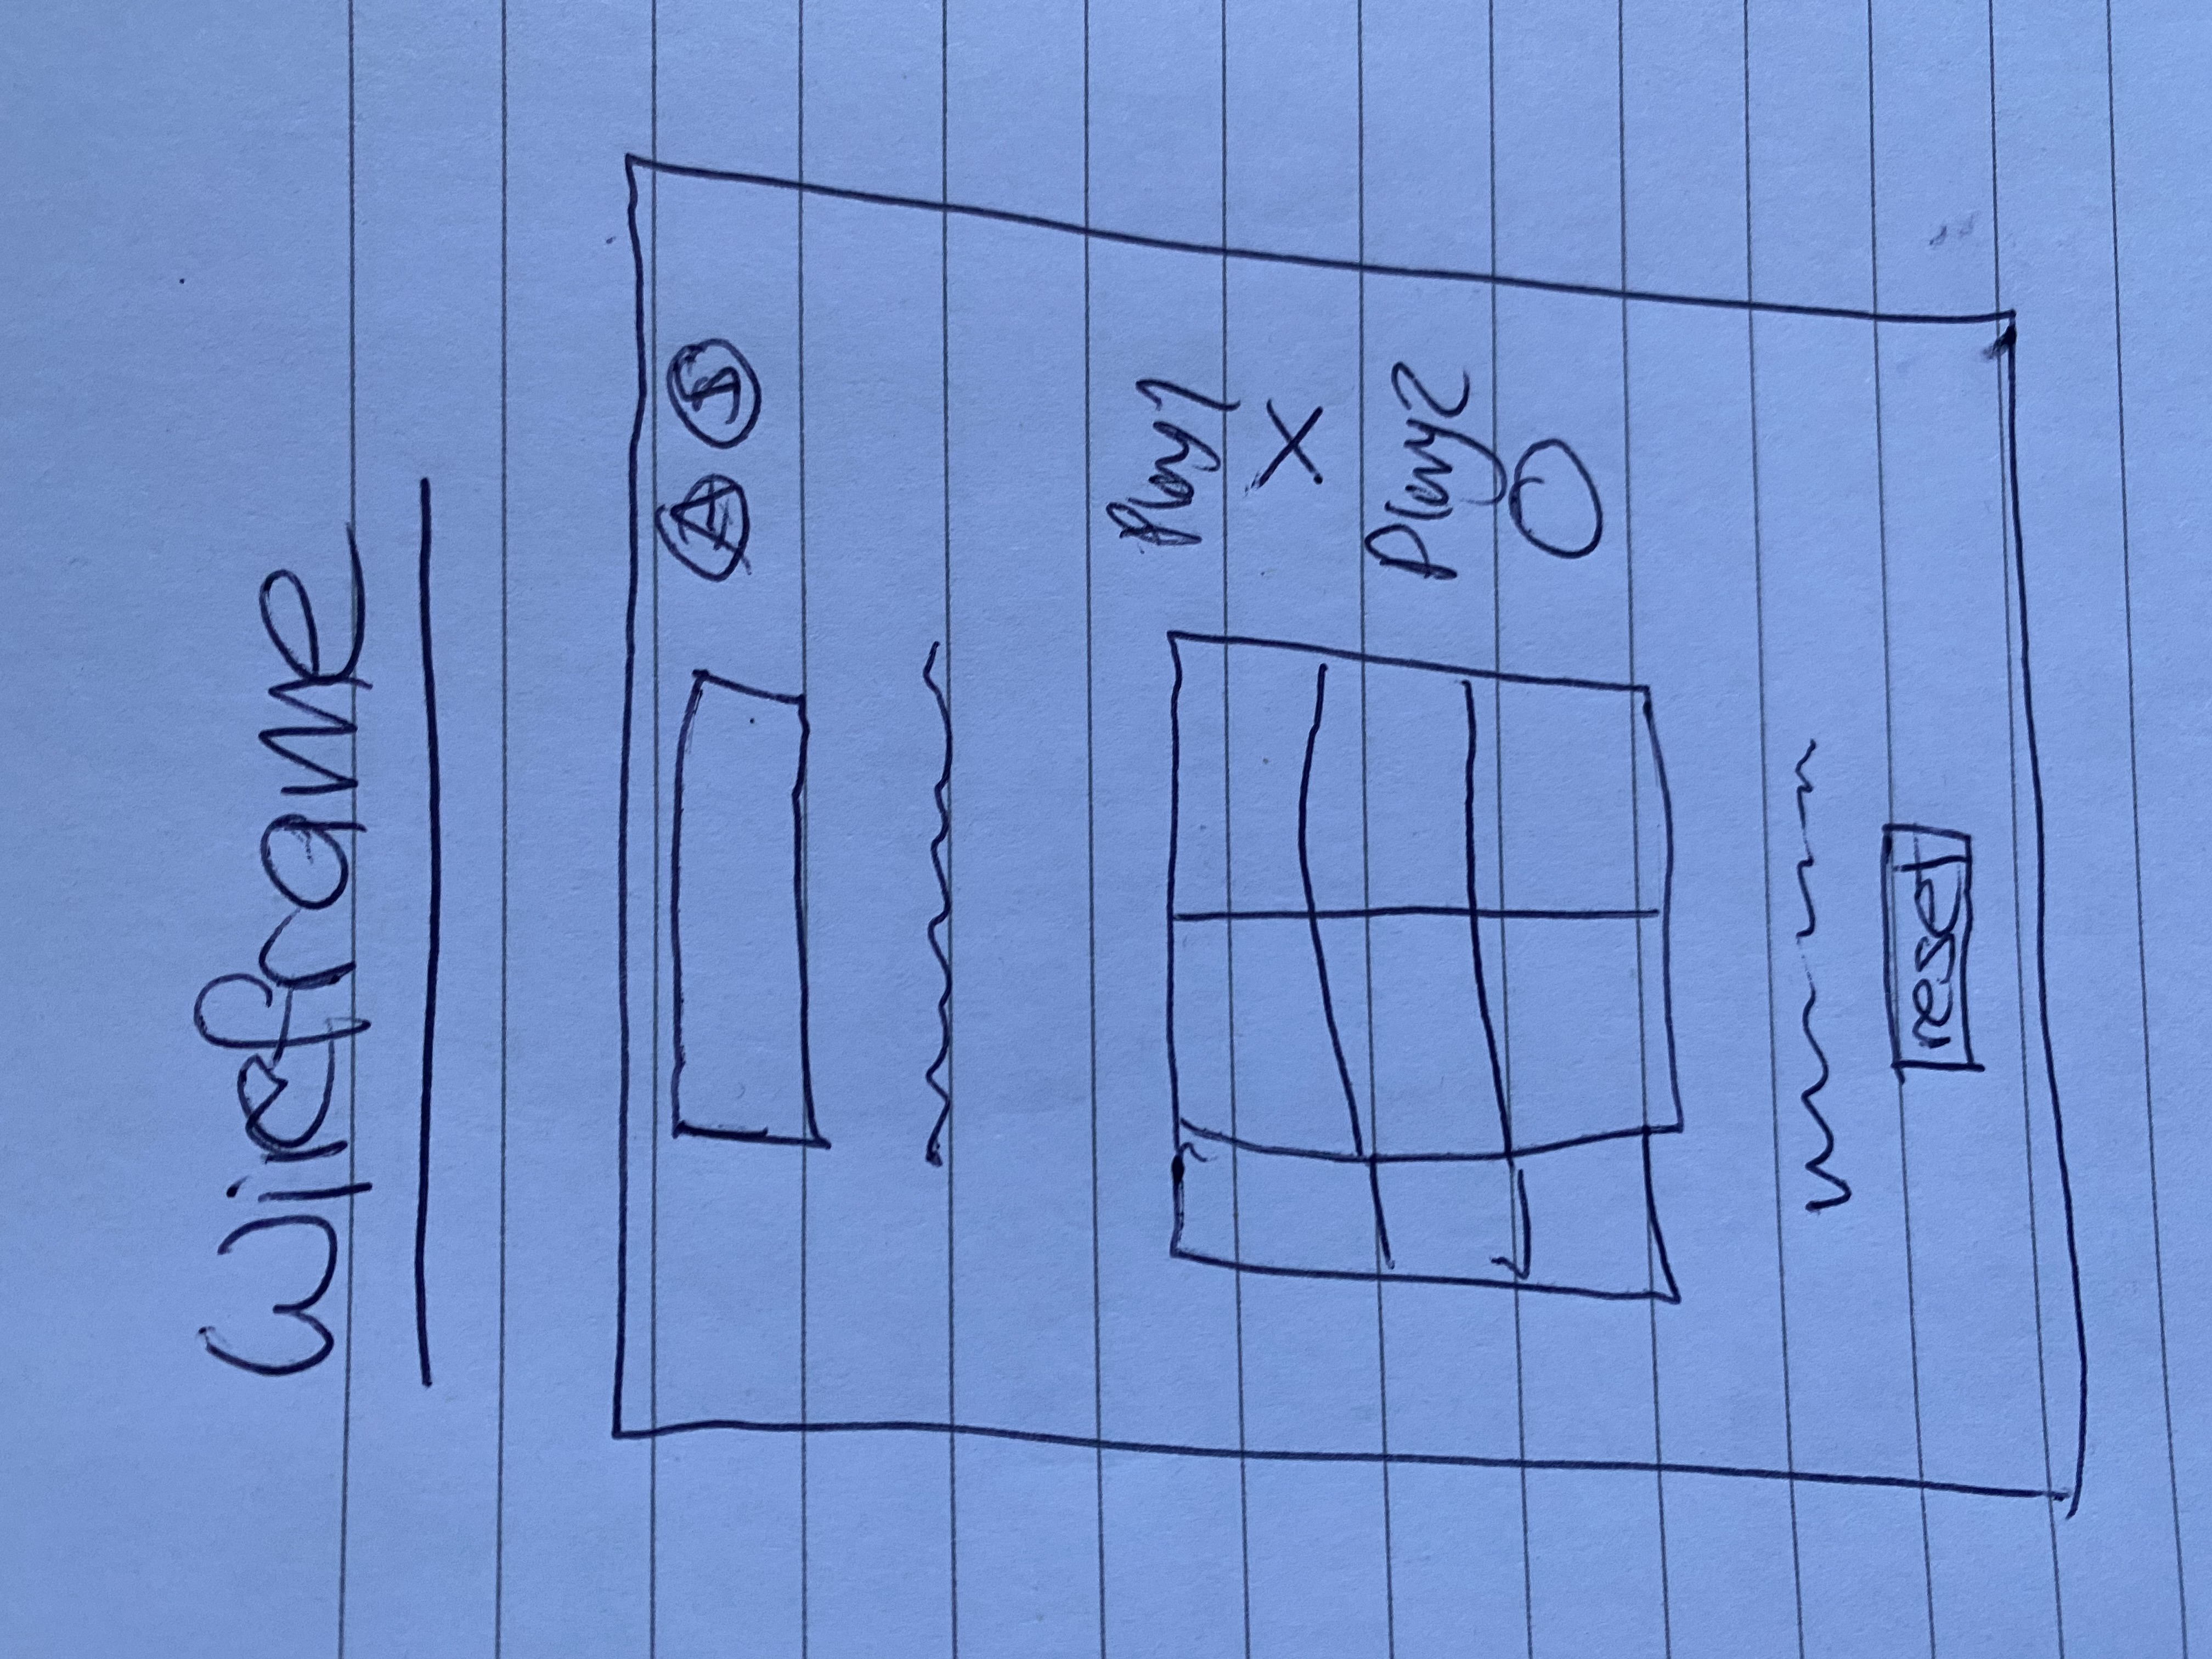 Wireframe
A
Play1
X
Play2
O
reset